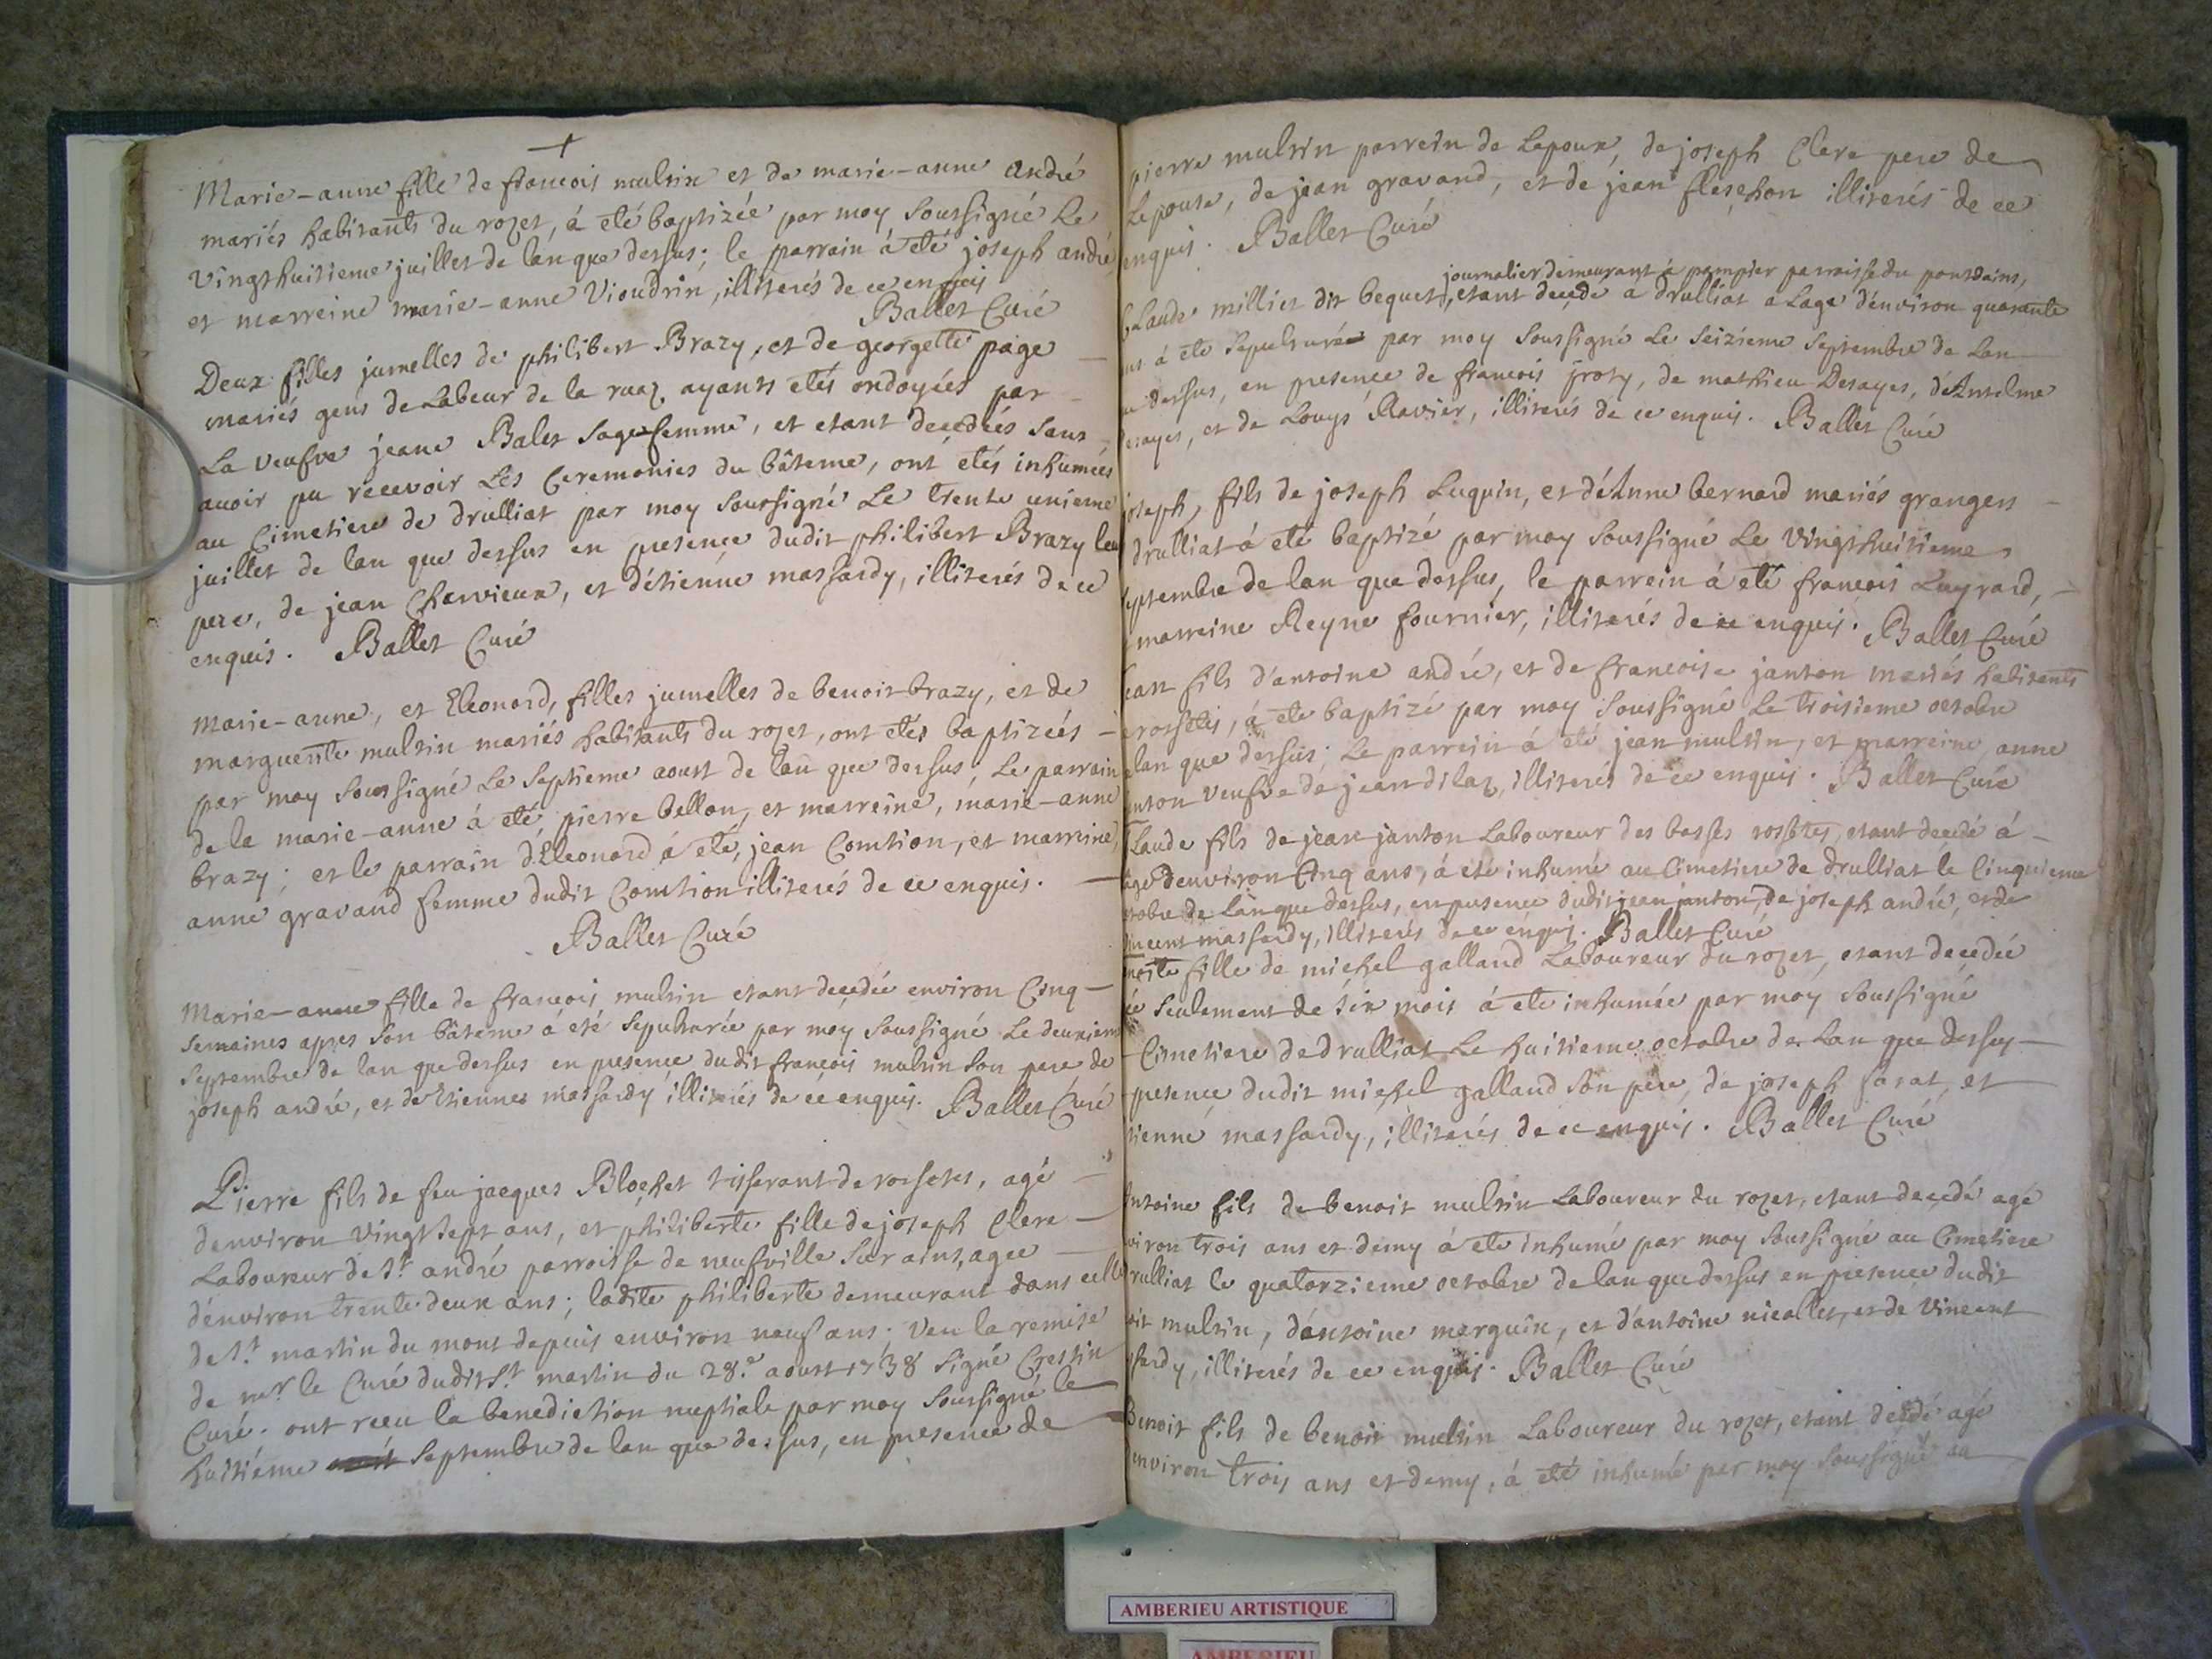 Marie-anne fille de francois multin et de marie-anne andré
mariés habitants du rozet, á eté baptizée par moy soussigné le
vingthuitieme juillet de lan que dessus; le parrain á eté joseph andré
et marreine marie-anne vioudrin, illiterés de ce enquis
Ballet Curé
Deux filles jumelles de philibert Brazy, et de georgette page
mariés gens de Labeur de la ruaz, ayants etés ondoyées par
La veufve jeane Balet sagefemme, et etant decedées sans
avoir pu recevoir Les Ceremonies du bâteme, ont etés inhumées
au Cimetiere de drulliat par moy soussigné Le trente unieme
juillet de lan que dessus en presence dudit philibert Brazy leur
pere, de jean Chervieux, et d'étienne massardy, illiterés de ce
enquis. Ballet Curé
Marie-anne, et Eleonord, filles jumelles de benoit brazy, et de
marguerite multin mariés habitants du rozet, ont etés baptizeés
par moy soussigné Le septieme aoust de lan que dessus, Le parrain
de la marie-anne á eté pierre bellon, et marreine, marie-anne
brazy; et le parrain d'Eleonord á eté, jean Comtion, et marreine,
anne gravand femme dudit Comtion illiterés de ce enquis.
Ballet Curé
Marie-anne fille de francois multin etant decedée environ Cinq
semaines apres son bâteme á eté sepulturée par moy soussigné Le deuxieme
septembre de lan que dessus en presence dudit francois multin son pere de
joseph andré, et de Etienne massardy illiterés de ce enquis. Ballet Curé
Pierre fils de feu jacques Blochet tisserant de rossetes, agé
denviron vingt sept ans, et philiberte fille de joseph Clere
Laboureur de St. andré parroisse de neufville sur ains, agee
d'environ trente deux ans; ladite philiberte demeurant dans celle
de St. martin du mont depuis environ neuf ans. Veu la remise
de mr. le Curé dudit St. martin du 28e. aoust 1738 signé Crestin
Curé. ont receu la benediction nuptiale par moy soussigné le
huitiéme septembre de lan que dessus, en presence de
pierre multin parrein de Lepoux, de joseph Clere pere de
Lepouse, de jean gravand, et de jean fleschon illiterés de ce
enquis. Ballet Curé
journalier demeurant à pompier parroisse du pontdains,
Claude milliet dit bequet, etant decedé á drulliat a Lage d'environ quarante
ans á eté sepulturé par moy soussigné Le seizieme septembre de Lan
que dessus, en presence de francois froty, de mathieu Desayes, d'Antelme
Desayes, et de Louys Ravier, illiterés de ce enquis. Ballet Curé
joseph, fils de joseph Luquin, et d'Anne bernard mariés grangers
drulliat á eté baptizé par moy soussigné Le vingthuitieme
septembre de lan que dessus, le parrein á eté francois Luyrard,
marreine Reyne fournier, illiterés de ce enquis. Ballet Curé
jean fils d'antoine andré, et de francoise janton mariés habitents
rossetes, á eté baptizé par moy soussigné Le troisieme octobre
lan que dessus; Le parrein á eté jean multin, et marreine anne
janton veufve de jean dilaz, illiterés de ce enquis. Ballet Curé
Claude fils de jean janton Laboureur des basses rossetes, etant decedé á
age denviron Cinq ans, á eté inhumé au Cimetiere de drulliat le Cinquieme
octobre de lan que dessus, en presence dudit jean janton, de joseph andré, et de
vincent massardy, illiterés de ce enquis. Ballet Curé
fille de michel galland Laboureur du rozet, etant decedée
seulement de six mois á eté inhumée par moy soussigné
Cimetiere de drulliat Le huitieme octobre de Lan que dessus
presence dudit michel galland son pere, de joseph sarat, et
etienne massardy, illiterés de ce enquis. Ballet Curé
antoine fils de benoit multin Laboureur du rozet, etant decedé agé
environ trois ans et demy á eté inhumé par moy soussigné au Cimetiere
drulliat le quatorzieme octobre de lan que dessus en presence dudit
benoit multin, d'antoine merguin, et d'antoine nicollet, et de vincent
massardy, illiterés de ce enquis. Ballet Curé
Benoit fils de benoit multin Laboureur du rozet, etant decedé agé
denviron trois ans et demy, á eté inhumé par moy soussigné au
AMBERIEU ARTISTIQUE
AMBERIEU